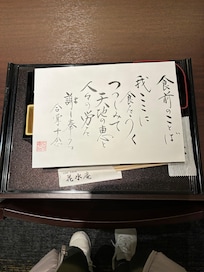 食前のことば
我ここに
食をうく
つつしみて
天地の恵と
人々の労を
謝し奉る
合掌十念
花水庵